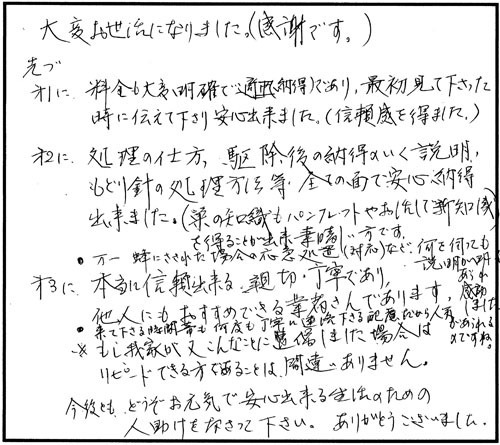 大変お世話になりました。(感謝です。)
先づ
才1に 料金も大変明確で(適正納得)であり、最初見て下さった
時に伝えて下さり安心出来ました。(信頼感を得ました。)
才2に 処理の仕方、駆除後の納得のいく説明、
もどり針の処理方法等 全ての面で安心、納得
出来ました。(巣の知織もパンフレットやお話しで新知識
を得ることが出来素晴しい方です。
• 万一蜂にさされた場合の応急処置(対応)など、何を何っても
説明が明るく
感動しました
才3に 本当に信頼出来る、親切、丁寧であり、
他人にもおすすめできる業者さんであります。
• 来て下さる時間帯も何度も丁寧に連絡下さる配慮だから人気
がおありなのですね。
※ もし我家が又こんなことに遭遇しました場合は
リピードできる方であることは、間違いありません。
今後とも、どうぞお元気で安心出来る生活のための
人助けをなさって下さい。 ありがとうございました。